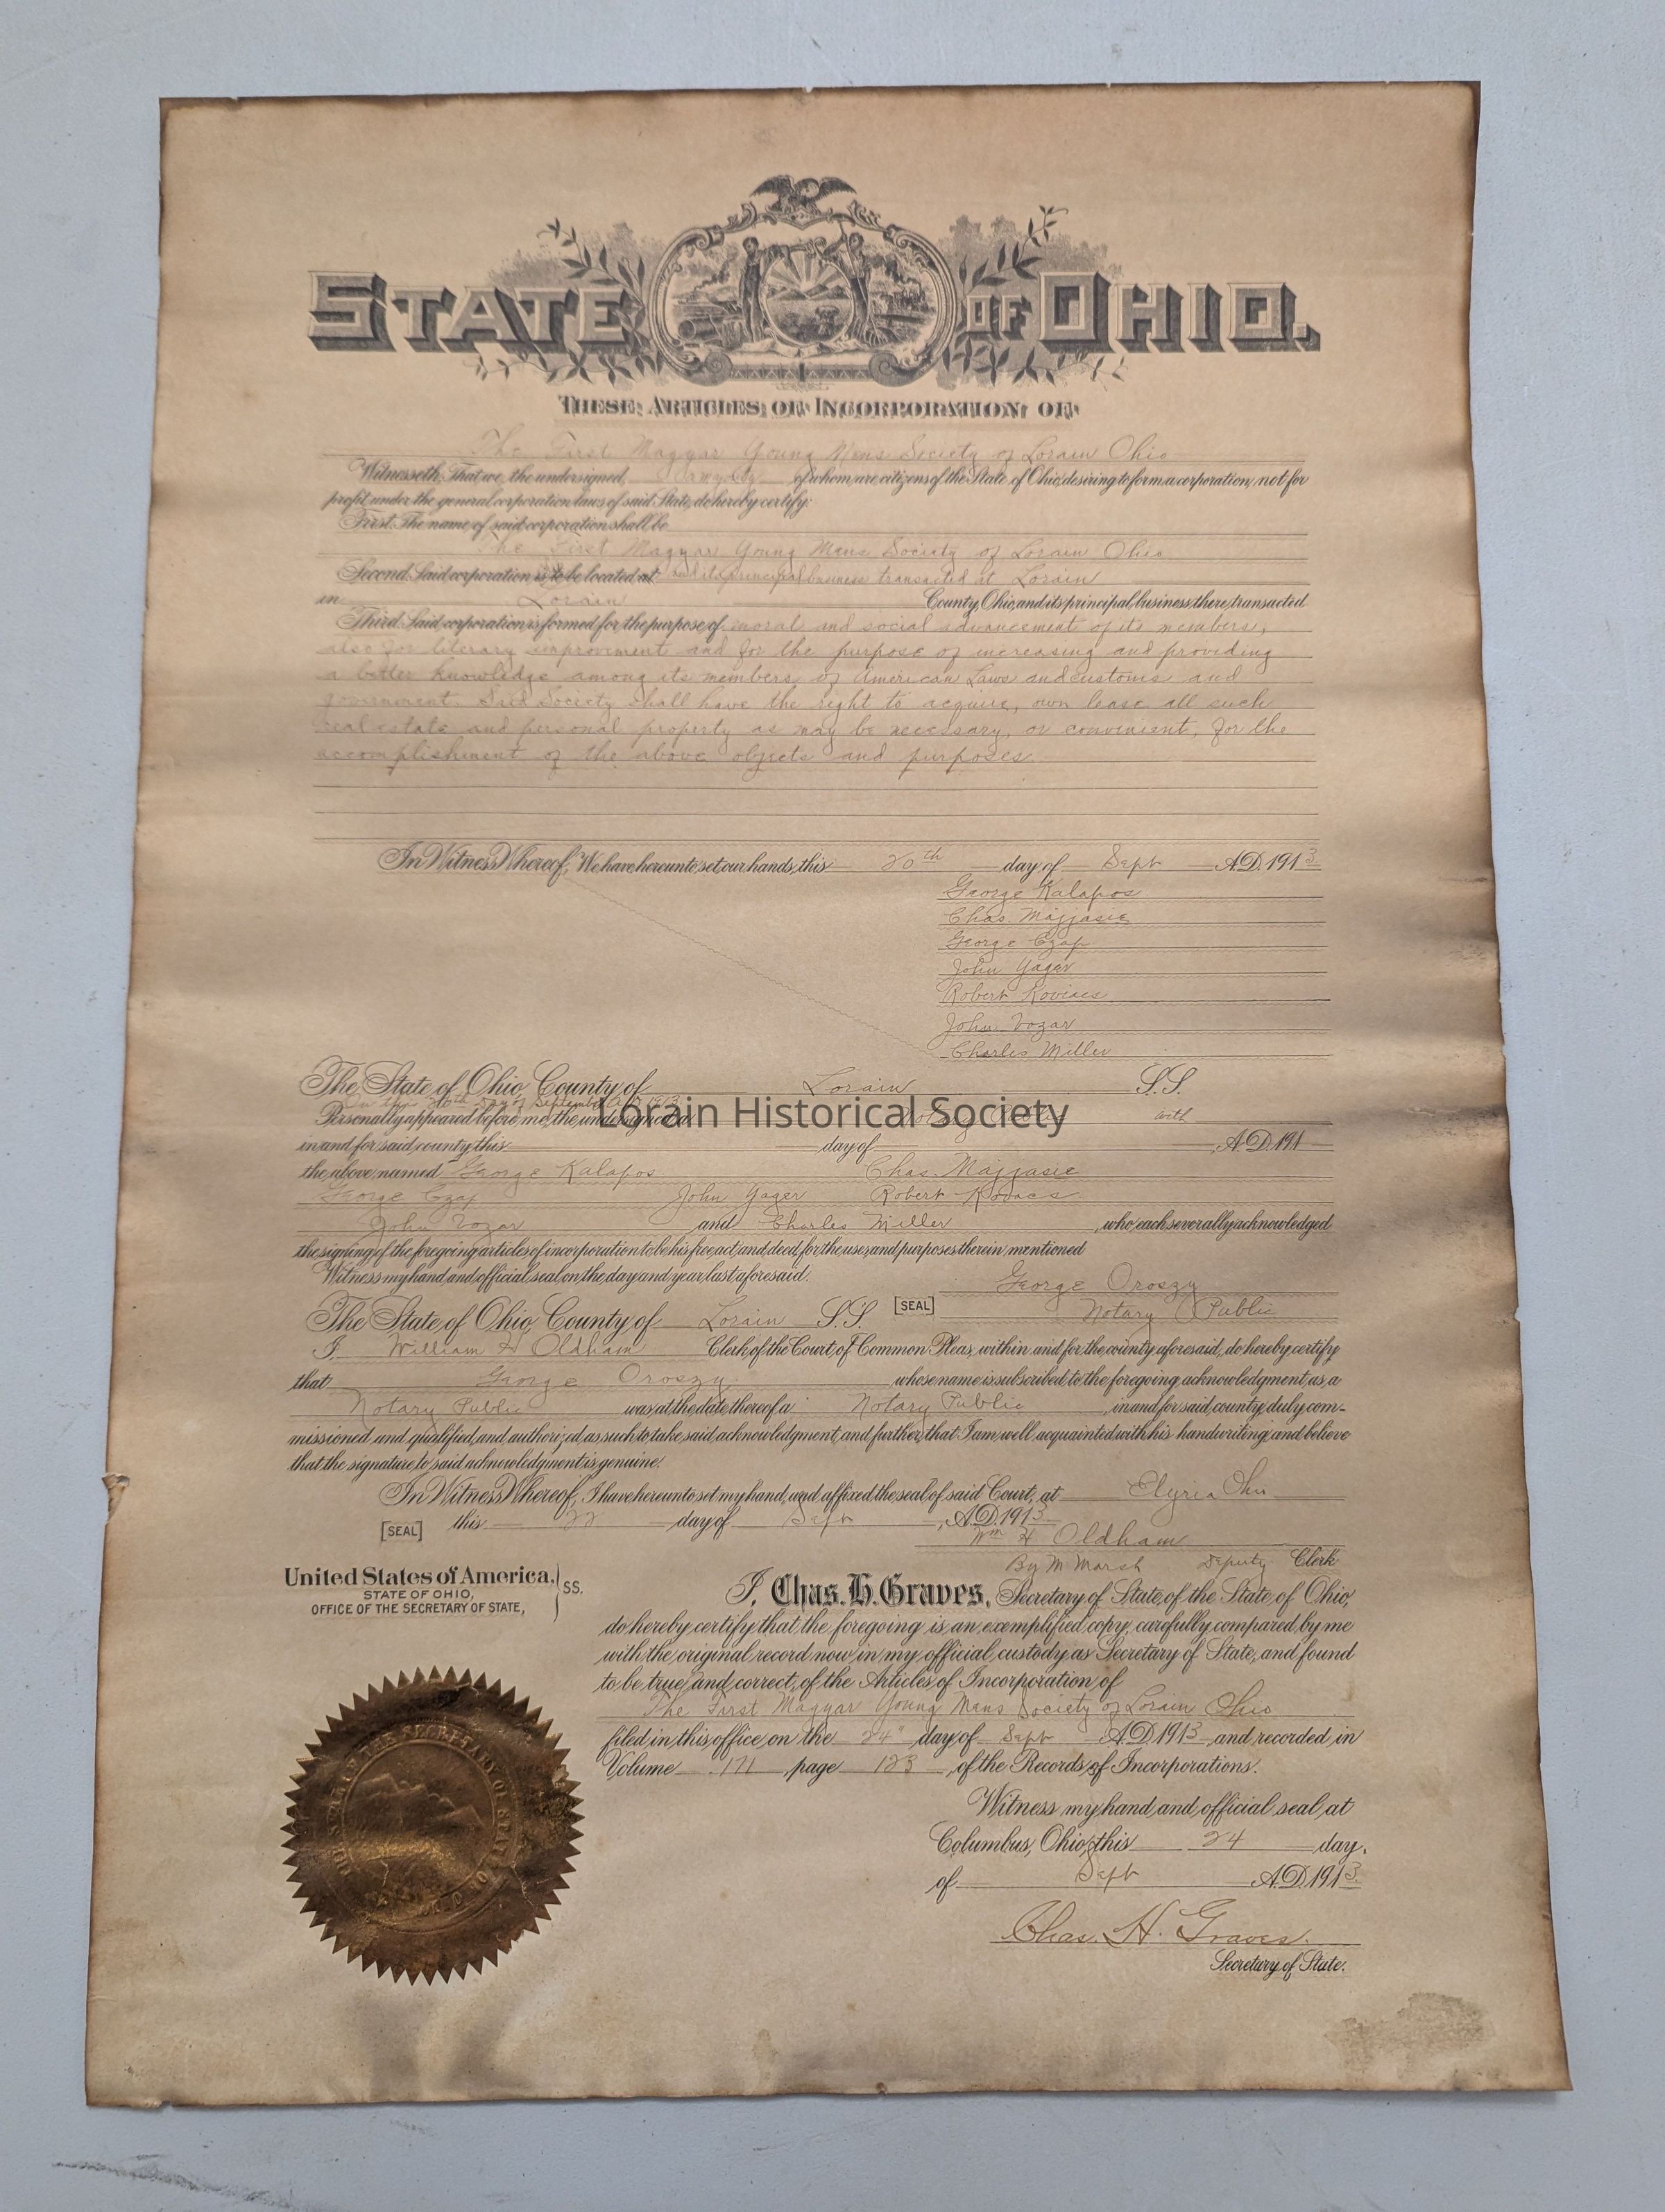 STATE OF OHIO.
THESE ARTICLES OF INCORPORATION OF
The First Magyar Young Mens Society of Lorain Ohio
Witnesseth, That we, the undersigned, of whom are citizens of the State of Ohio, desiring to form a corporation, not for
profit under the general corporation laws of said State, do hereby certify:
First. The name of said corporation shall be
The First Magyar Young Mens Society of Lorain Ohio
Second. Said corporation is to be located at and its principal business transacted at Lorain
in Lorain County, Ohio, and its principal business there transacted
Third. Said corporation is formed for the purpose of moral and social advancement of its members,
also for literary improvement and for the purpose of increasing and providing
a better knowledge among its members of American Laws and customs and
government. Said Society shall have the right to acquire, own lease all such
real estate and personal property as may be necessary, or convenient, for the
accomplishment of the above objects and purposes.
In Witness Whereof, We have hereunto set our hands, this 20th day of Sept A.D. 1913
George Kalapos
Chas. Majjasie
George Czap
John Yager
Robert Kovacs
John Vozar
Charles Miller
The State of Ohio, County of Lorain S.S.
On this 20th day of September A.D. 1913
Personally appeared before me, the undersigned, a Notary with
in and for said county this day of , A.D. 191
the above named George Kalapos Chas. Majjasie
George Czap John Yager Robert Kovacs
John Vozar and Charles Miller , who each severally acknowledged
the signing of the foregoing articles of incorporation to be his free act and deed, for the uses and purposes therein mentioned
Witness my hand and official seal on the day and year last aforesaid.
George Oroszy
[SEAL] Notary Public
The State of Ohio, County of Lorain S.S.
I William H Oldham Clerk of the Court of Common Pleas, within and for the county aforesaid, do hereby certify
that George Oroszy whose name is subscribed to the foregoing acknowledgment, as a
Notary Public was at the date thereof a Notary Public in and for said county, duly com-
missioned and qualified, and authorized, as such to take said acknowledgment, and further, that I am well acquainted with his handwriting and believe
that the signature to said acknowledgment is genuine.
In Witness Whereof, I have hereunto set my hand, and affixed the seal of said Court, at Elyria Ohio
[SEAL] this 22 day of Sept , A.D. 1913
Wm H. Oldham
By M Marsh Deputy Clerk
United States of America,
STATE OF OHIO,
OFFICE OF THE SECRETARY OF STATE,
SS.
I, Chas. H. Graves, Secretary of State, of the State of Ohio,
do hereby certify that the foregoing is an exemplified copy, carefully compared by me
with the original record now in my official custody as Secretary of State, and found
to be true and correct, of the Articles of Incorporation of
The First Magyar Young Mens Society of Lorain Ohio
filed in this office on the 24" day of Sept A.D. 1913 and recorded in
Volume 171 page 123 , of the Records of Incorporations.
Witness my hand and official seal at
Columbus, Ohio, this 24 day,
of Sept A.D. 1913
Chas. H. Graves.
Secretary of State.
Lorain Historical Society